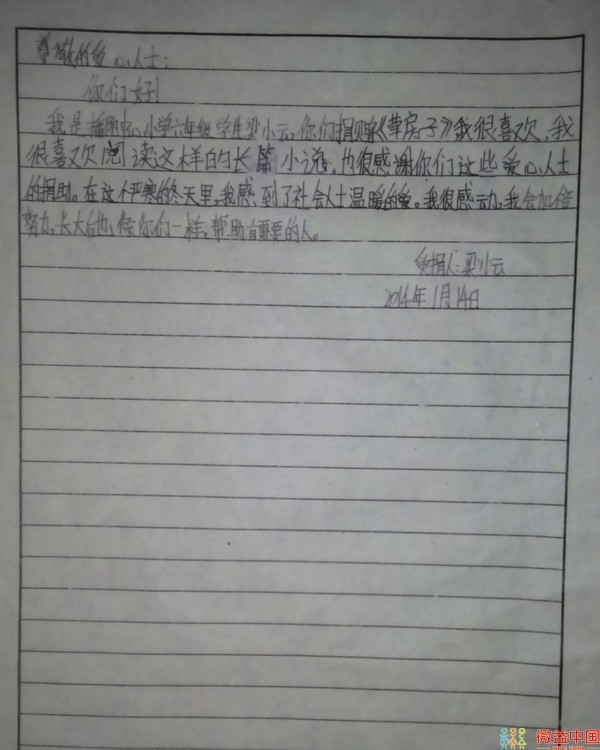 尊敬的爱心人士:
你们好!
我是播阳中心小学六年级学生梁小云,你们捐赠《草房子》我很喜欢,我
很喜欢阅读这样的长篇小说。也很感谢你们这些爱心人士
的捐助。在这个严寒的冬天里,我感到了社会人士温暖的爱。我很感动,我会加倍
努力,长大后也像你们一样,帮助有需要的人。
受捐人:梁小云
2014年1月14日
微益中国